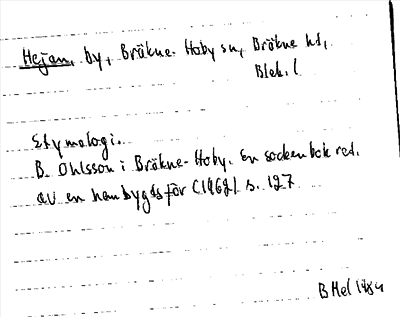 Hejan, by, Bräkne-Hoby sn, Bräkne hd,
Blek. l
Etymologi.
B. Ohlsson i Bräkne-Hoby. En sockenbok red.
av en hembygdsför (1962) s. 127
B Hel 1984